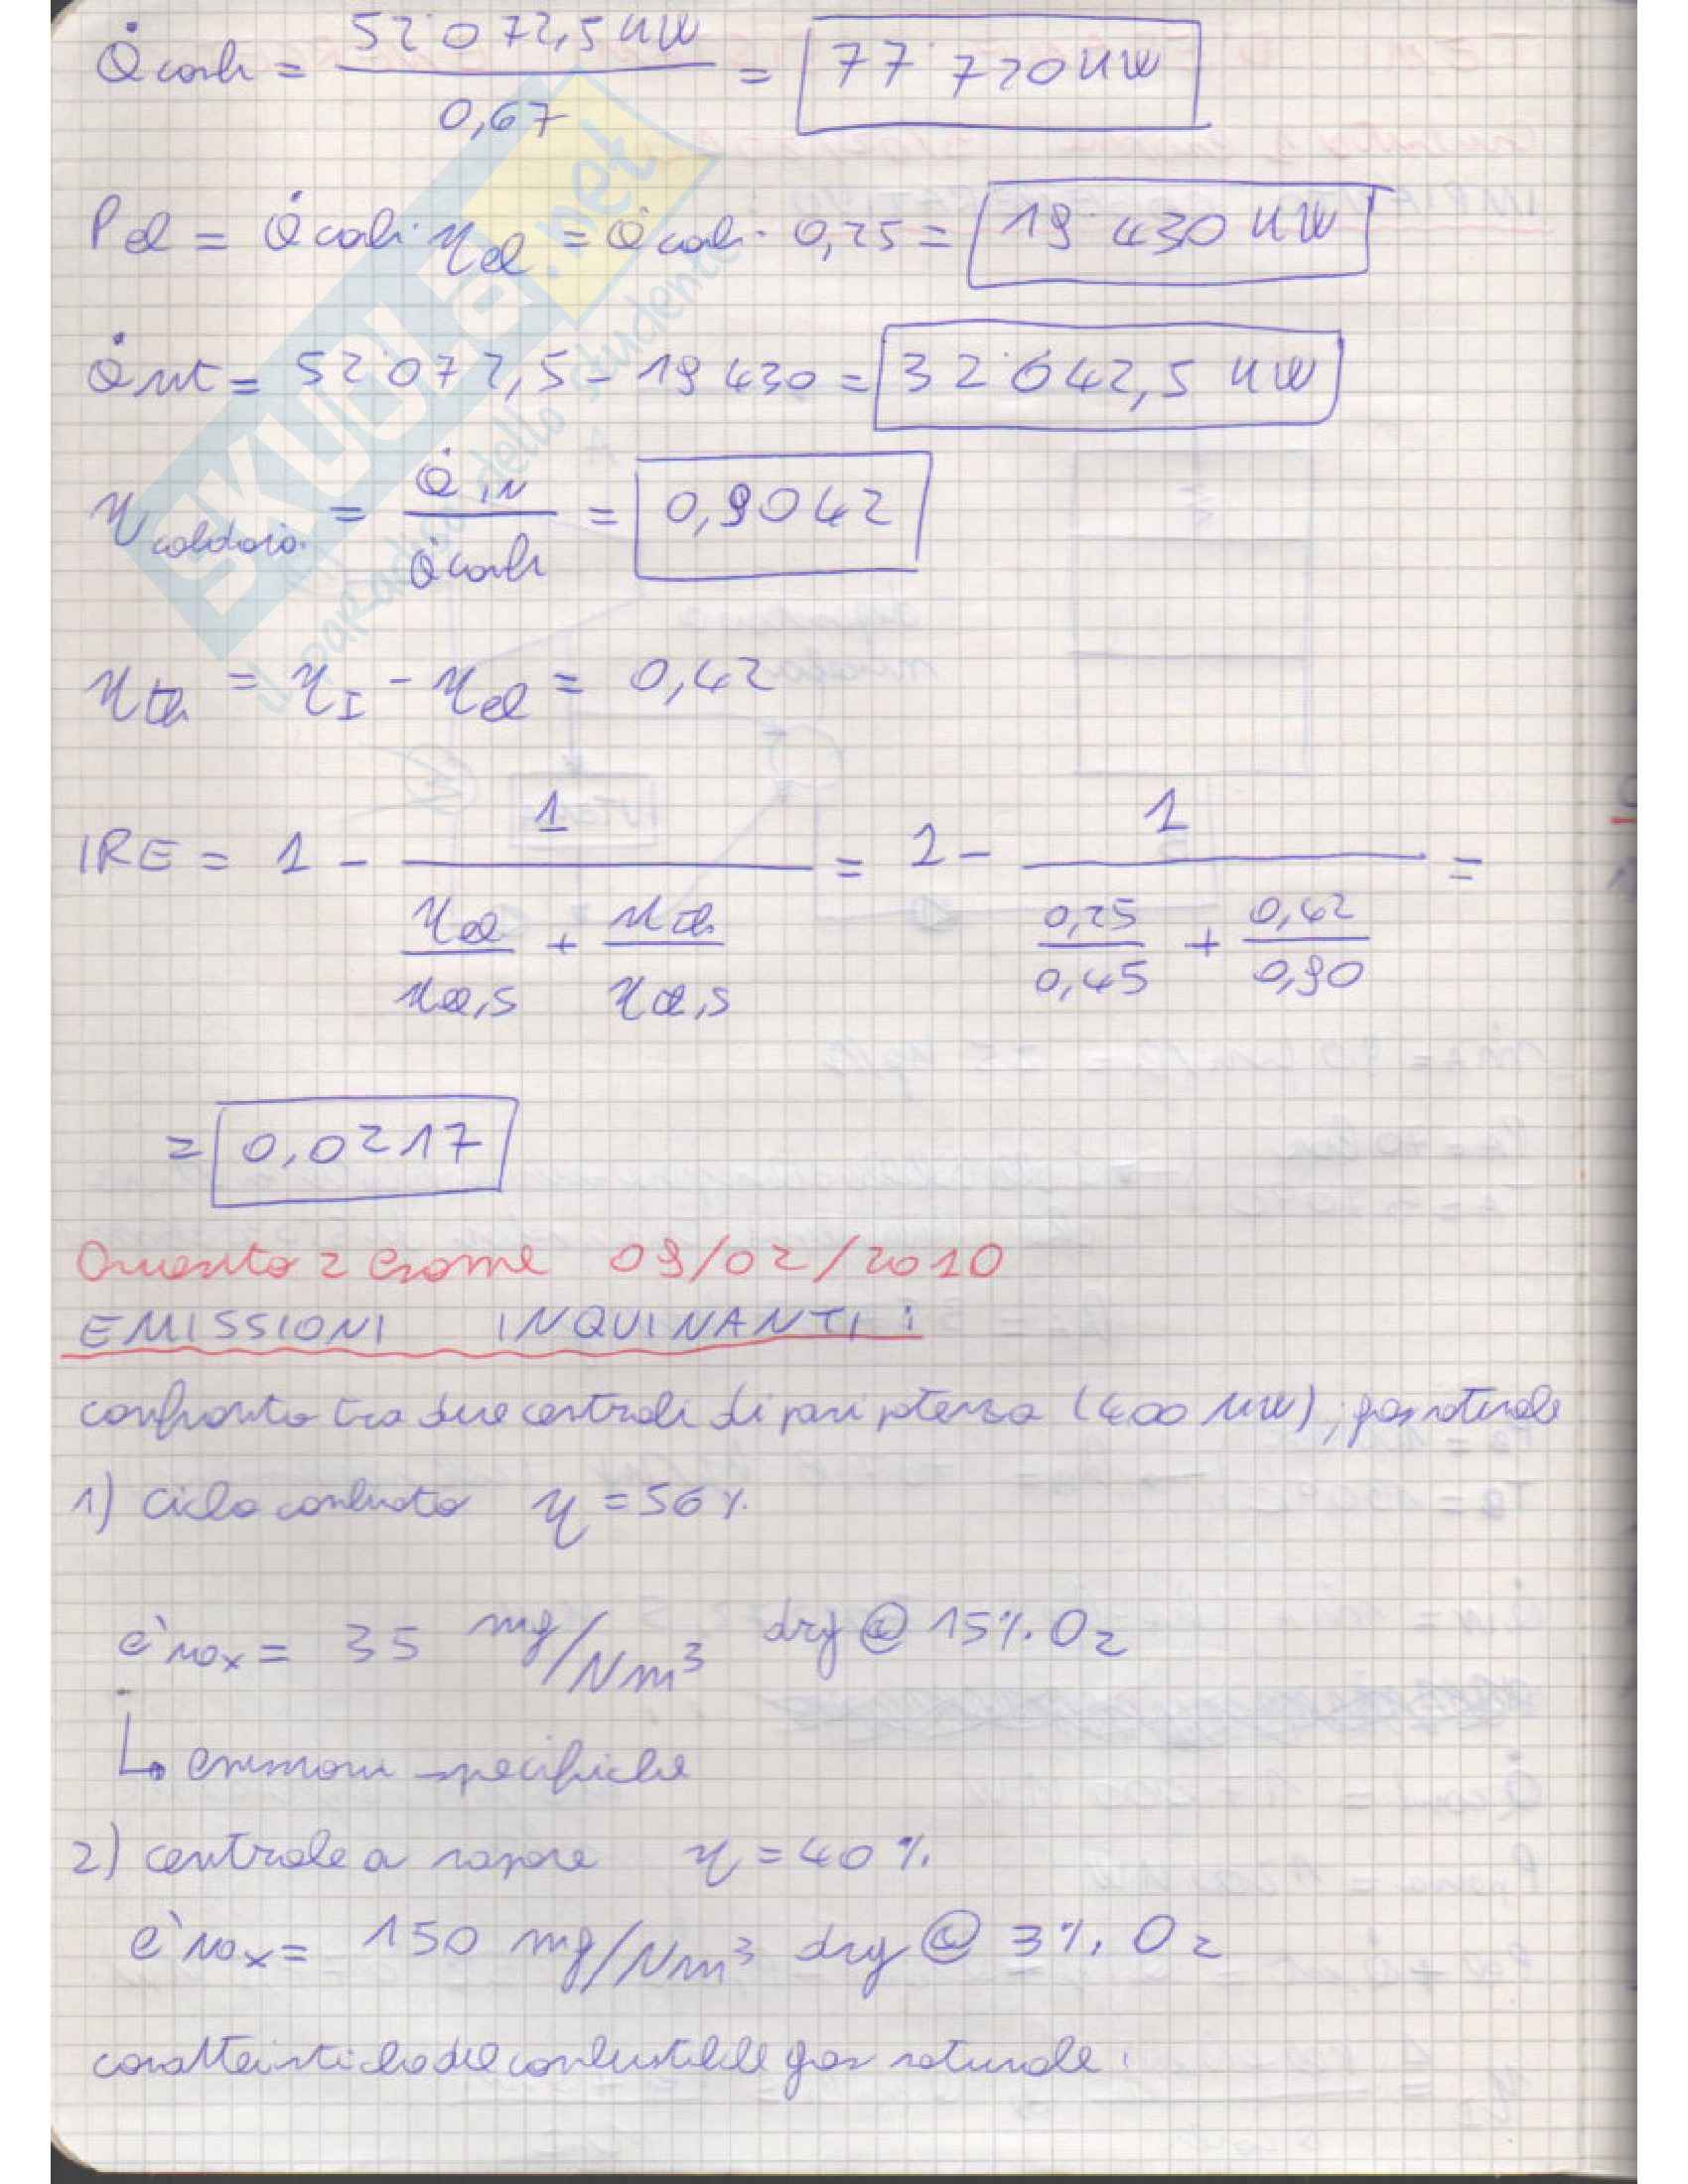 Q̇comb = 52'072,5 kW / 0,67 = 77'720 kW
Pel = Q̇comb · ηel = Q̇comb · 0,25 = 19'430 kW
Q̇ut = 52'072,5 - 19430 = 32'642,5 kW
ηcaldaia = Q̇in / Q̇comb = 0,9042
ηth = ηI - ηel = 0,42
IRE = 1 - 1 / (ηel/ηel,s + ηth/ηth,s) = 1 - 1 / (0,25/0,45 + 0,42/0,90) =
= 0,0217
Quesito 2 esame 09/02/2010
EMISSIONI INQUINANTI:
confronto tra due centrali di pari potenza (400 MW), gas naturale
1) ciclo combinato η = 56%
e'NOx = 35 mg/Nm³ dry @ 15% O2
↳ emissioni specifiche
2) centrale a vapore η = 40%
e'NOx = 150 mg/Nm³ dry @ 3% O2
caratteristiche del combustibile gas naturale:
SKUOLA.net
il paradiso dello studente